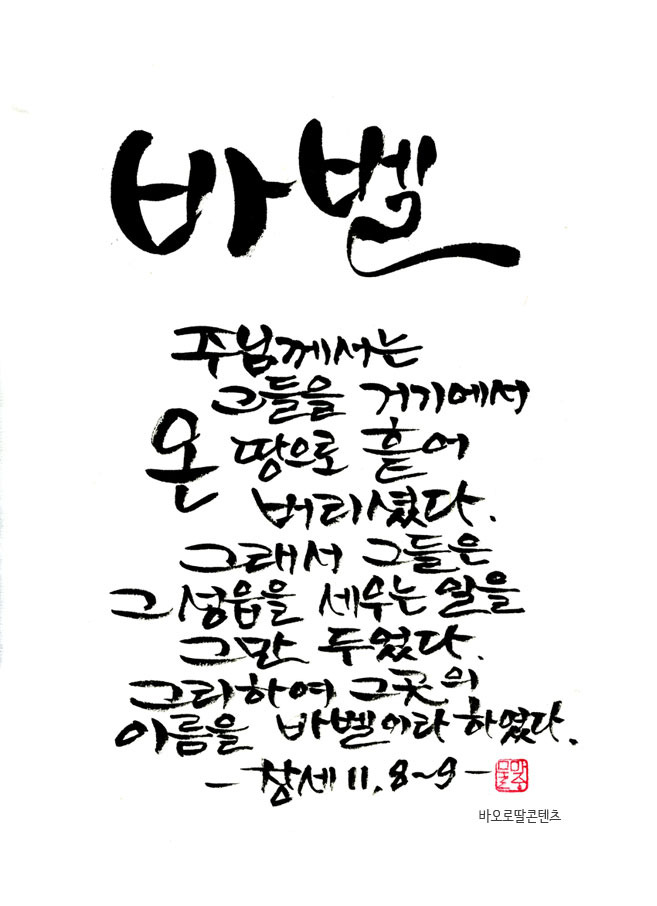 바벨
주님께서는
그들을 거기에서
온 땅으로 흩어
버리셨다.
그래서 그들은
그 성읍을 세우는 일을
그만 두었다.
그리하여 그곳의
이름을 바벨이라 하였다.
- 창세 11, 8~9 -
바오로딸콘텐츠